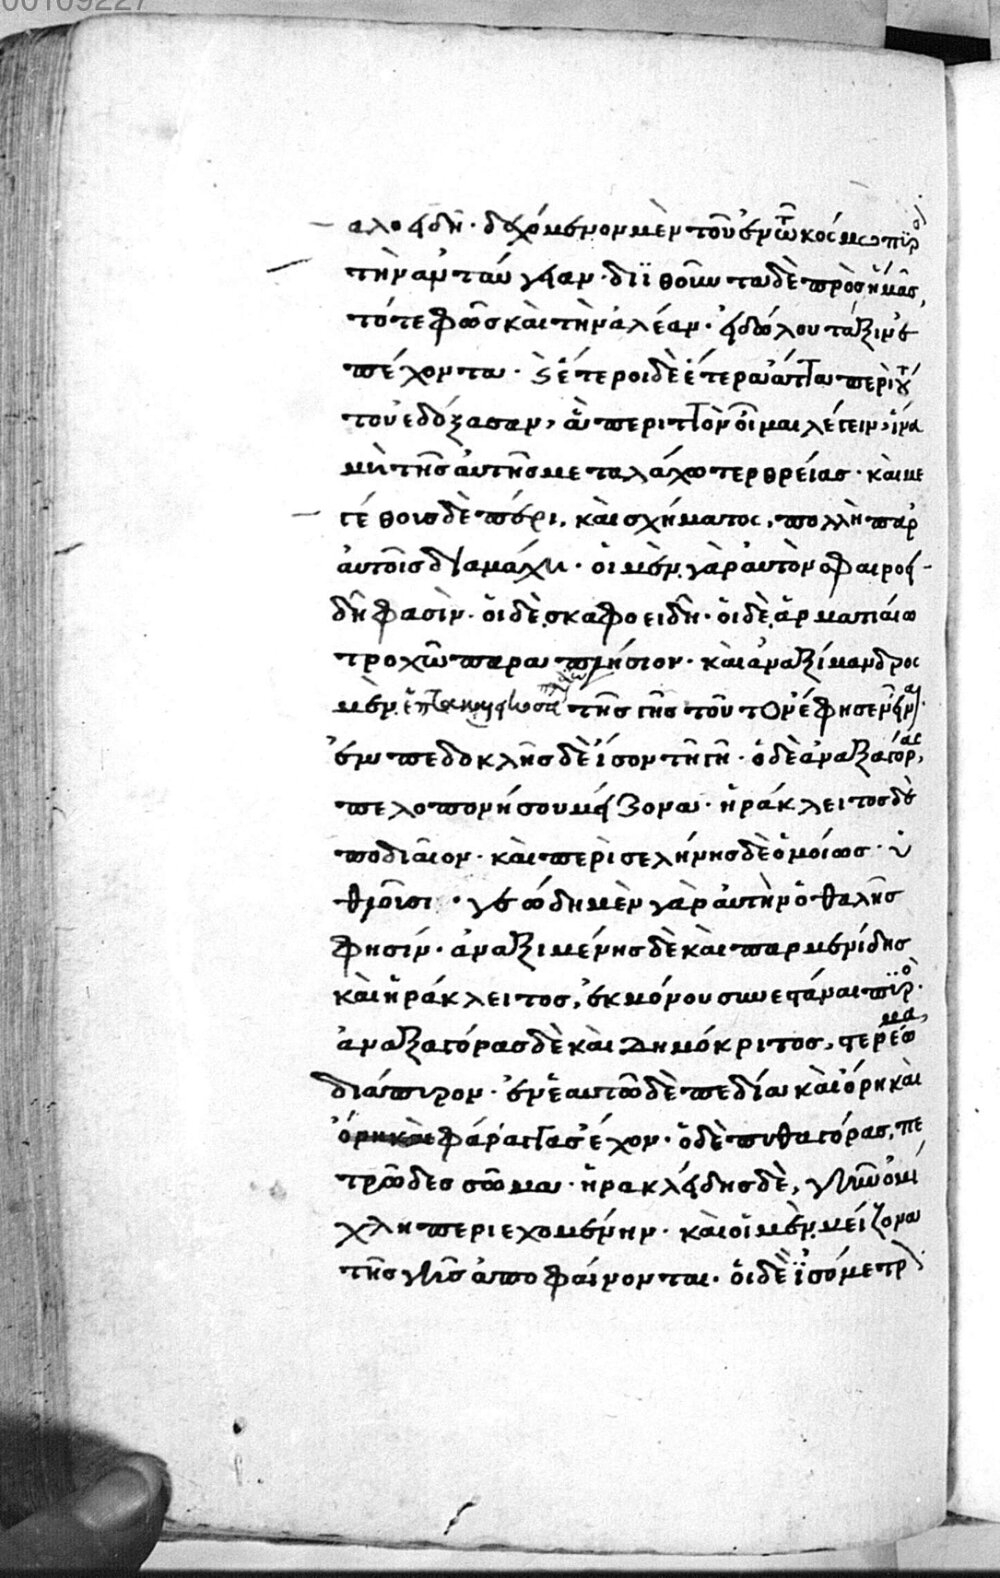 αλοειδῆ · δεχόμενον μὲν τοῦ ἐν τῶ κόσμω πυρὸσ
τὴν ἀνταύγειαν · διϊθοῦντα δὲ πρὸσ ἡμᾶσ,
τό τε φῶσ καὶ τὴν ἀλέαν · εἰδώλου τάξιν ἐ
πέχοντα · ἕτεροι δὲ ἕτερα ἄττα περὶ τού
του ἐδόξασαν, ἃ περιττὸν οἶμαι λέγειν, ἵνα
μὴ τῆσ αὐτῆσ μεταλάχω τερθρείασ · καὶ με
γέθουσ δὲ πέρι, καὶ σχήματοσ, πολλὴ παρ
αὐτοῖσ διαμάχη · οἱ μὲν γὰρ αὐτὸν σφαιροει
δῆ φασὶν · οἱ δὲ σκαφοειδῆ · οἱ δὲ ἁρματείω
τροχῶ παραπλήσιον · καὶ ἀναξίμανδροσ
μὲν τῆσ γῆσ τοῦτον ἔφησεν εἶναι ·
ἐμπεδοκλῆσ δὲ ἴσον τῆ γῆ · ὁ δὲ ἀναξαγόρασ,
πελοπονήσου μείζονα · ἡράκλειτοσ δὲ
ποδιαῖον · καὶ περὶ σελήνησ δὲ ὁμοίωσ ὑ
θλοῦσι · γεώδη μὲν γὰρ αὐτὴν ὁ θαλῆσ
φησίν · ἀναξιμένησ δὲ καὶ παρμενίδησ
καὶ ἡράκλειτοσ, ἐκ μόνου συνεστάναι πυρὸσ ·
ἀναξαγόρασ δὲ καὶ δημόκριτοσ, στερέωμα
διάπυρον · ἐν ἑαυτῶ δὲ πεδία καὶ ὄρη καὶ
ὄρη καὶ φάραγγασ ἔχον · ὁ δὲ πυθαγόρασ, πε
τρῶδεσ σῶμα · ἡρακλείδησ δὲ, γῆν ὀμί
χλη περιεχομένην · καὶ οἱ μὲν μείζονα
τῆσ γῆσ ἀποφαίνονται · οἱ δὲ ἰσόμετρ